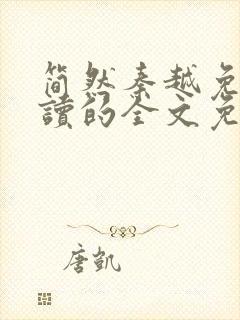 简然秦越免
讀的全文免
唐凯